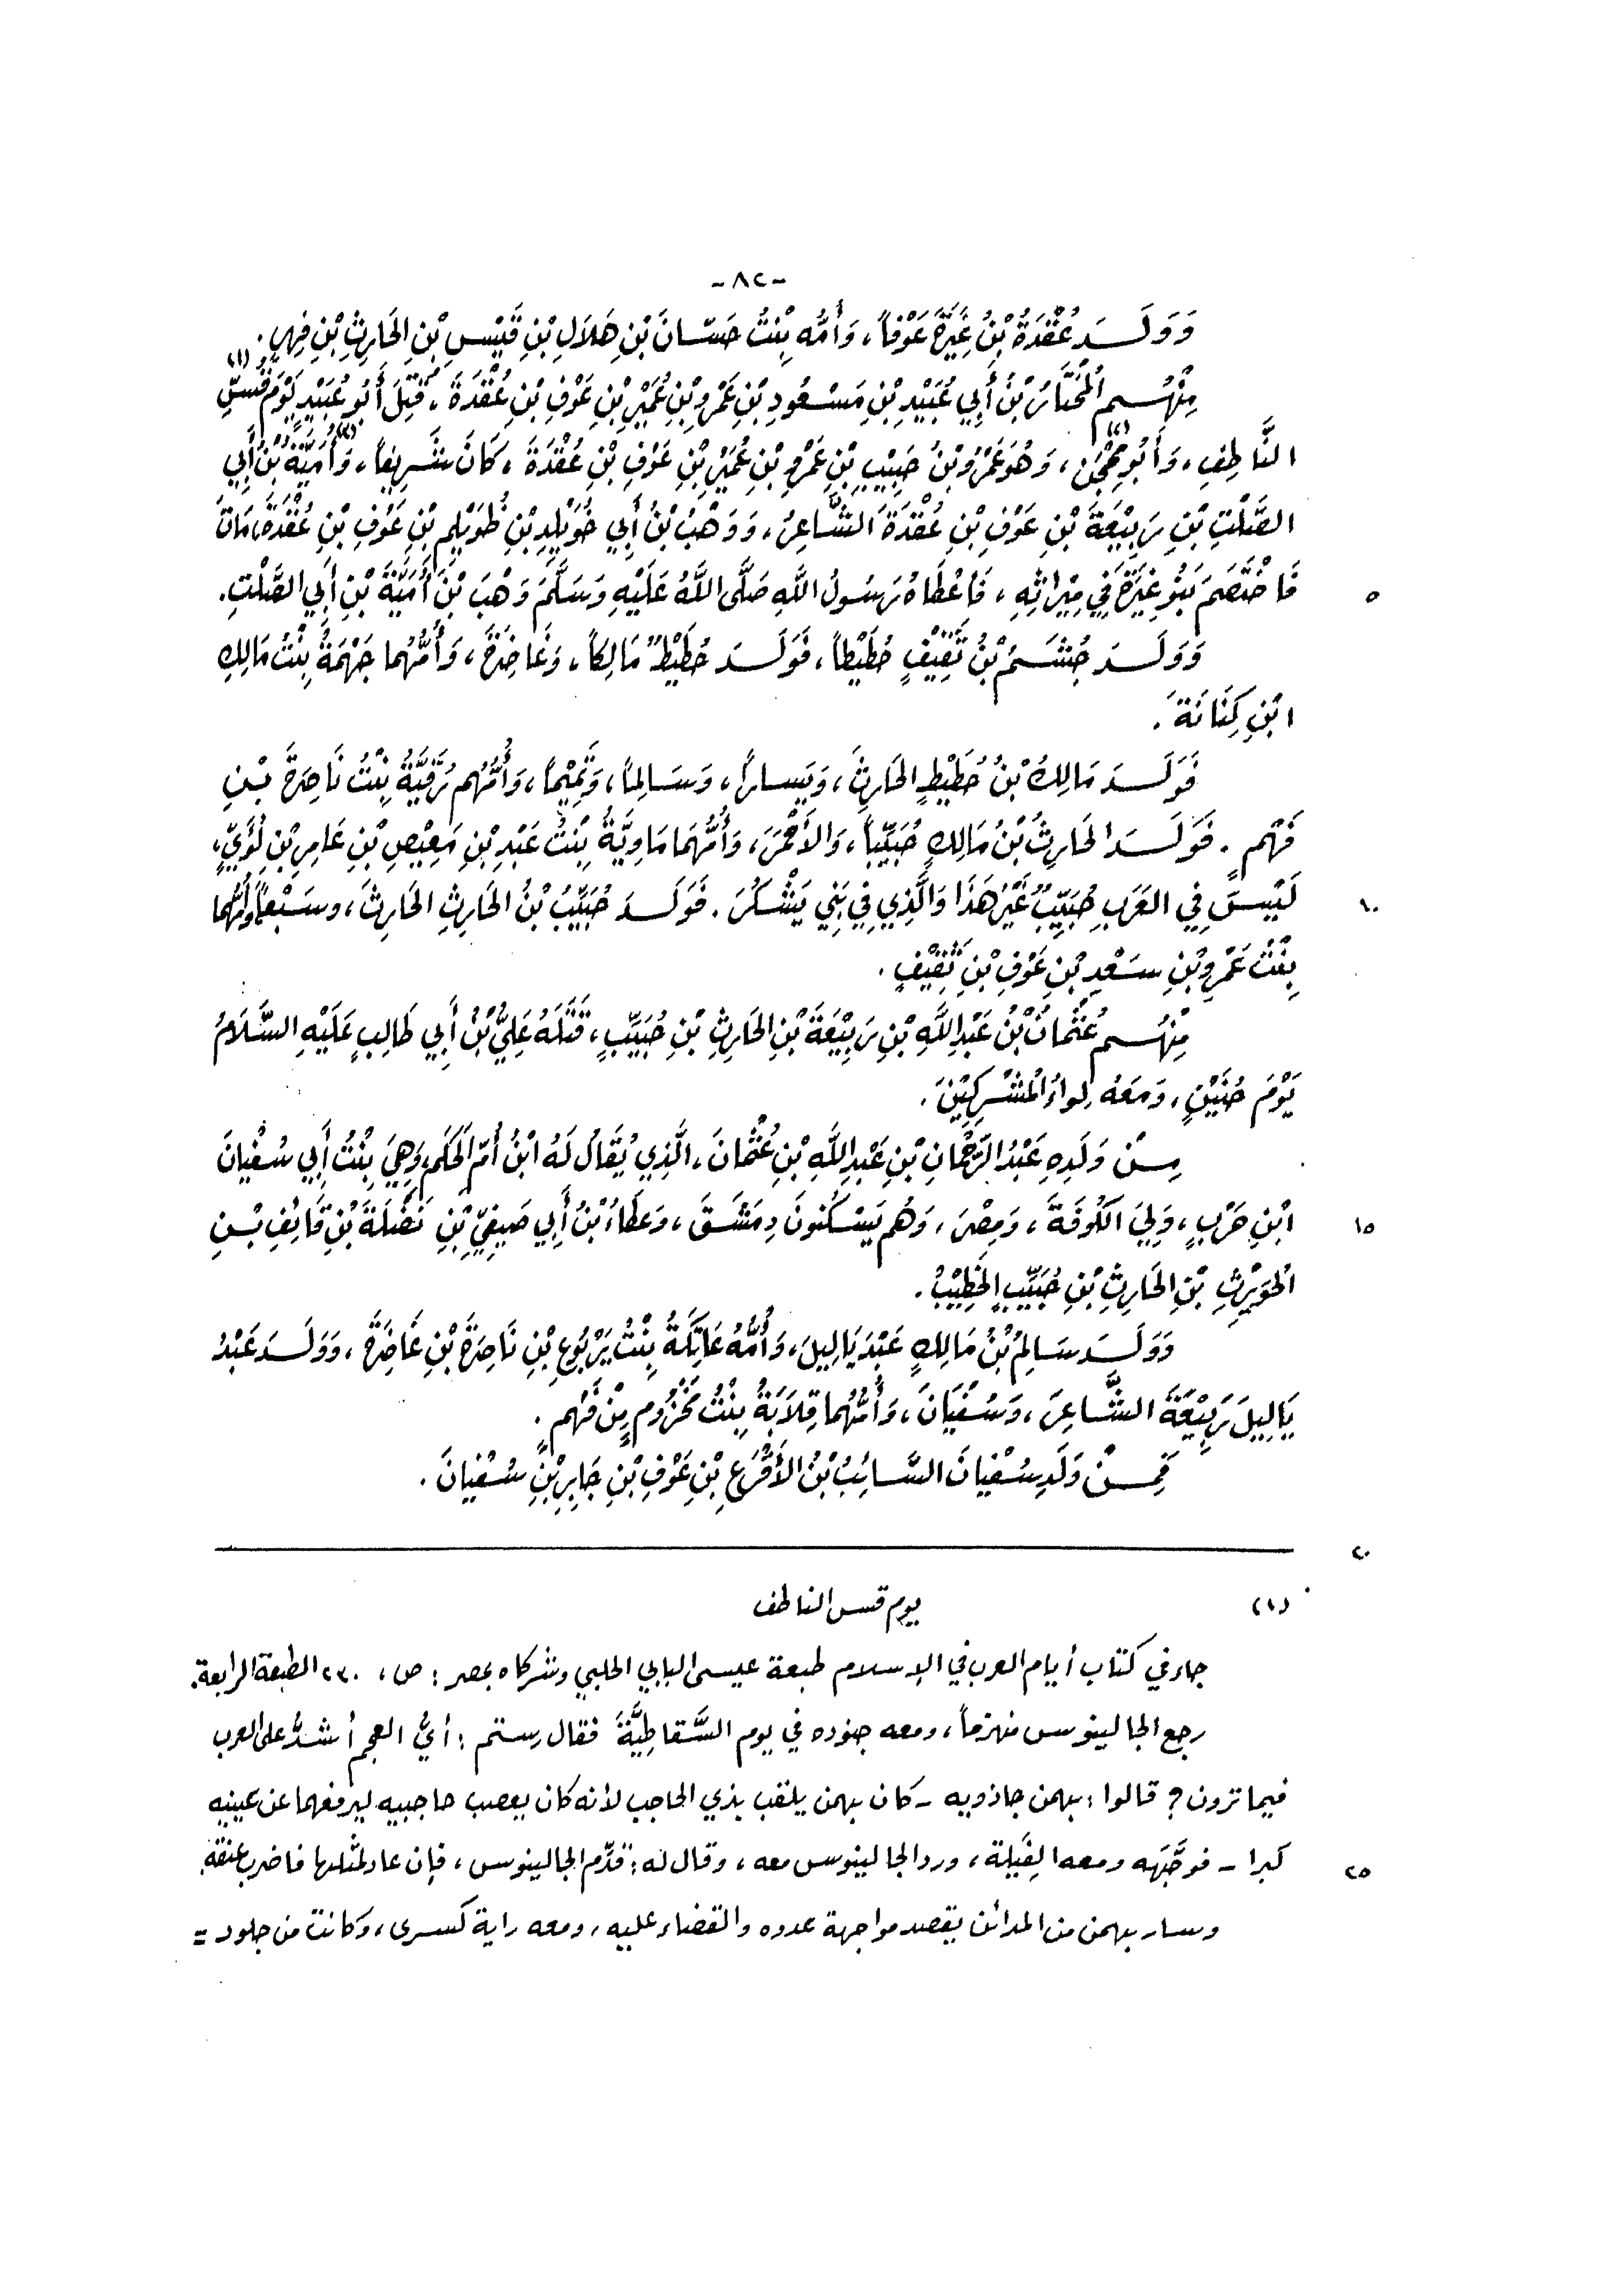 -٨٢-
وَوَلَـــدَ عُقْدَةُ بْنُ غِيَرَةَ عَوْفاً، وَأُمُّه بِنْتُ حَسّانَ بْنِ هَلَالِ بْنِ قَيْسِ بْنِ الحَارِثِ بْنِ فِهْرٍ.
مِنْهُـــم الُمخْتَارُ بْنُ أَبِي عُبَيْدِ بْنِ مَسْعُودِ بْنِ عَمْرِو بْنِ عُمَيْرِ بْنِ عَوْفِ بْنِ عُقْدَةَ، قُتِلَ أَبُو عُبَيْدٍ يَوْمَ قُسِّ (١)
النَّاطِفِ، وَأَبُو مِحْجَنٍ (٢)، وَهُوَ عَمْرُو بْنُ حَبِيْبِ بْنِ عَمْرِو بْنِ عُمَيْرِ بْنِ عَوْفِ بْنِ عُقْدَةَ، كَانَ شَرِيفاً، وَأُمَيَّةُ (٣) بْنُ أَبِي
الصَّلْتِ بْنِ رَبِيْعَةَ بْنِ عَوْفِ بْنِ عُقْدَةَ الشَّاعِرُ، وَوَهْبُ بْنُ أَبِي خُوَيْلِدِ بْنِ ظُوَيْلِمِ بْنِ عَوْفِ بْنِ عُقْدَةَ، مَاتَ
فَاخْتَصَمَ بَنُو غِيَرَةَ فِي مِيْرَاثِهِ، فَأَعْطَاهُ رَسُولُ اللَّهِ صَلَّى اللَّهُ عَلَيْهِ وَسَلَّمَ وَهْبَ بْنَ أُمَيَّةَ بْنِ أَبِي الصَّلْتِ.
٥
وَوَلَـــدَ جُشَـــمُ بْنُ ثَقِيْفٍ حُطَيْطاً، فَوَلَـــدَ حُطَيْطٌ مَالِكاً، وَغَاضِرَةَ، وَأُمُّهُما جَهْمَةُ بِنْتُ مَالِكِ
ابْنِ كِنَانَةَ.
فَوَلَـــدَ مَالِكُ بْنُ حُطَيْطٍ الحَارِثَ، وَيَساراً، وَسَالِماً، وَتَمِيْماً، وَأُمُّهُم رُقَيَّةُ بِنْتُ نَاصِرَةَ بْـنِ
فَهْمٍ. فَوَلَـــدَ الحَارِثُ بْنُ مَالِكٍ حُبَيِّباً، وَالأَحْمَرَ، وَأُمُّهُمَا مَاوِيَّةُ بِنْتُ عَبْدِ بْنِ مَعِيْصِ بْنِ عَامِرِ بْنِ لُؤَيٍّ،
لَيْسَ فِي العَرَبِ حُبَيِّبٌ غَيْرُ هَذَا وَالَّذِي فِي بَنِي يَشْكُرَ. فَوَلَـــدَ حُبَيِّبُ بْنُ الحَارِثِ الحَارِثَ، وسَبْعاً وَأُمُّهُما
١٠
بِنْتُ عَمْرِو بْنِ سَعْدِ بْنِ عَوْفِ بْنِ ثَقِيْفٍ.
مِنْهُـــم عُثْمَانُ بْنُ عَبْدِ اللَّهِ بْنِ رَبِيْعَةَ بْنِ الحَارِثِ بْنِ حُبَيِّبٍ، قَتَلَهُ عَلِيُّ بْنُ أَبِي طَالِبٍ عَلَيْهِ السَّلَامُ
يَوْمَ حُنَيْنٍ، وَمَعَهُ لِواءُ الُمشْرِكِيْنَ.
مِـــنْ وَلَدِهِ عَبْدُ الرَّحْمَانِ بْنِ عَبْدِ اللَّهِ بْنِ عُثْمَانَ، الَّذِي يُقَالُ لَهُ ابْنُ أُمِّ الَحكَمِ وَهِيَ بِنْتُ أَبِي سُفْيانَ
ابْنِ حَرْبٍ، وَلِيَ الكُوفَةَ، وَمِصْرَ، وَهُم يَسْكُنونَ دِمَشْقَ، وَعَطَاءُ بْنُ أَبِي صَيْفِيِّ بْنِ نَضْلَةَ بْنِ قَائِفِ بْـنِ
١٥
الُحوَيْرِثِ بْنِ الحَارِثِ بْنِ حُبَيِّبٍ الخَطِيْبُ.
وَوَلَـــدَ سَالِمُ بْنُ مَالِكٍ عَبْدَ يَالِيلَ، وَأُمُّهُ عَاتِكَةُ بِنْتُ يَرْبُوعِ بْنِ نَاصِرَةَ بْنِ غَاضِرَةَ، وَوَلَـــدَ عَبْدُ
يَالِيلَ رَبِيْعَةَ الشَّاعِرَ، وَسُفْيَانَ، وَأُمُّهُما قِلَابَةُ بِنْتُ مَخْزُومٍ مِنْ فَهْمٍ.
فَمِـــنْ وَلَدِ سُفْيانَ السَّائِبُ بْنُ الأَقْرَعِ بْنِ عَوْفِ بْنِ جَابِرِ بْنِ سُفْيانَ.
٢٠
(١) يوم قس الناطف
جاء في كتاب أيام العرب في الإسلام طبعة عيسى البابي الحلبي وشركاه بمصر: ص، ٢٣٠ الطبعة الرابعة.
رجع الجالينوس منهزماً، ومعه جنوده في يوم السَّقاطِيَّةَ فقال رستم: أيُّ العجم أشدُّ على العرب
فيما ترون؟ قالوا: بهمن جاذويه - كان بهمن يلقب بذي الحاجب لأنه كان يعصب حاجبيه ليرفعهما عن عينيه
كبرا - فوجَّهه ومعه الفِيَلة، ورد الجالينوس معه، وقال له: قدِّم الجالينوس، فإن عاد لمثلها فاضرب عنقه.
٢٥
وسار بهمن من المدائن يقصد مواجهة عدوه والقضاء عليه، ومعه راية كسرى، وكانت من جلود =